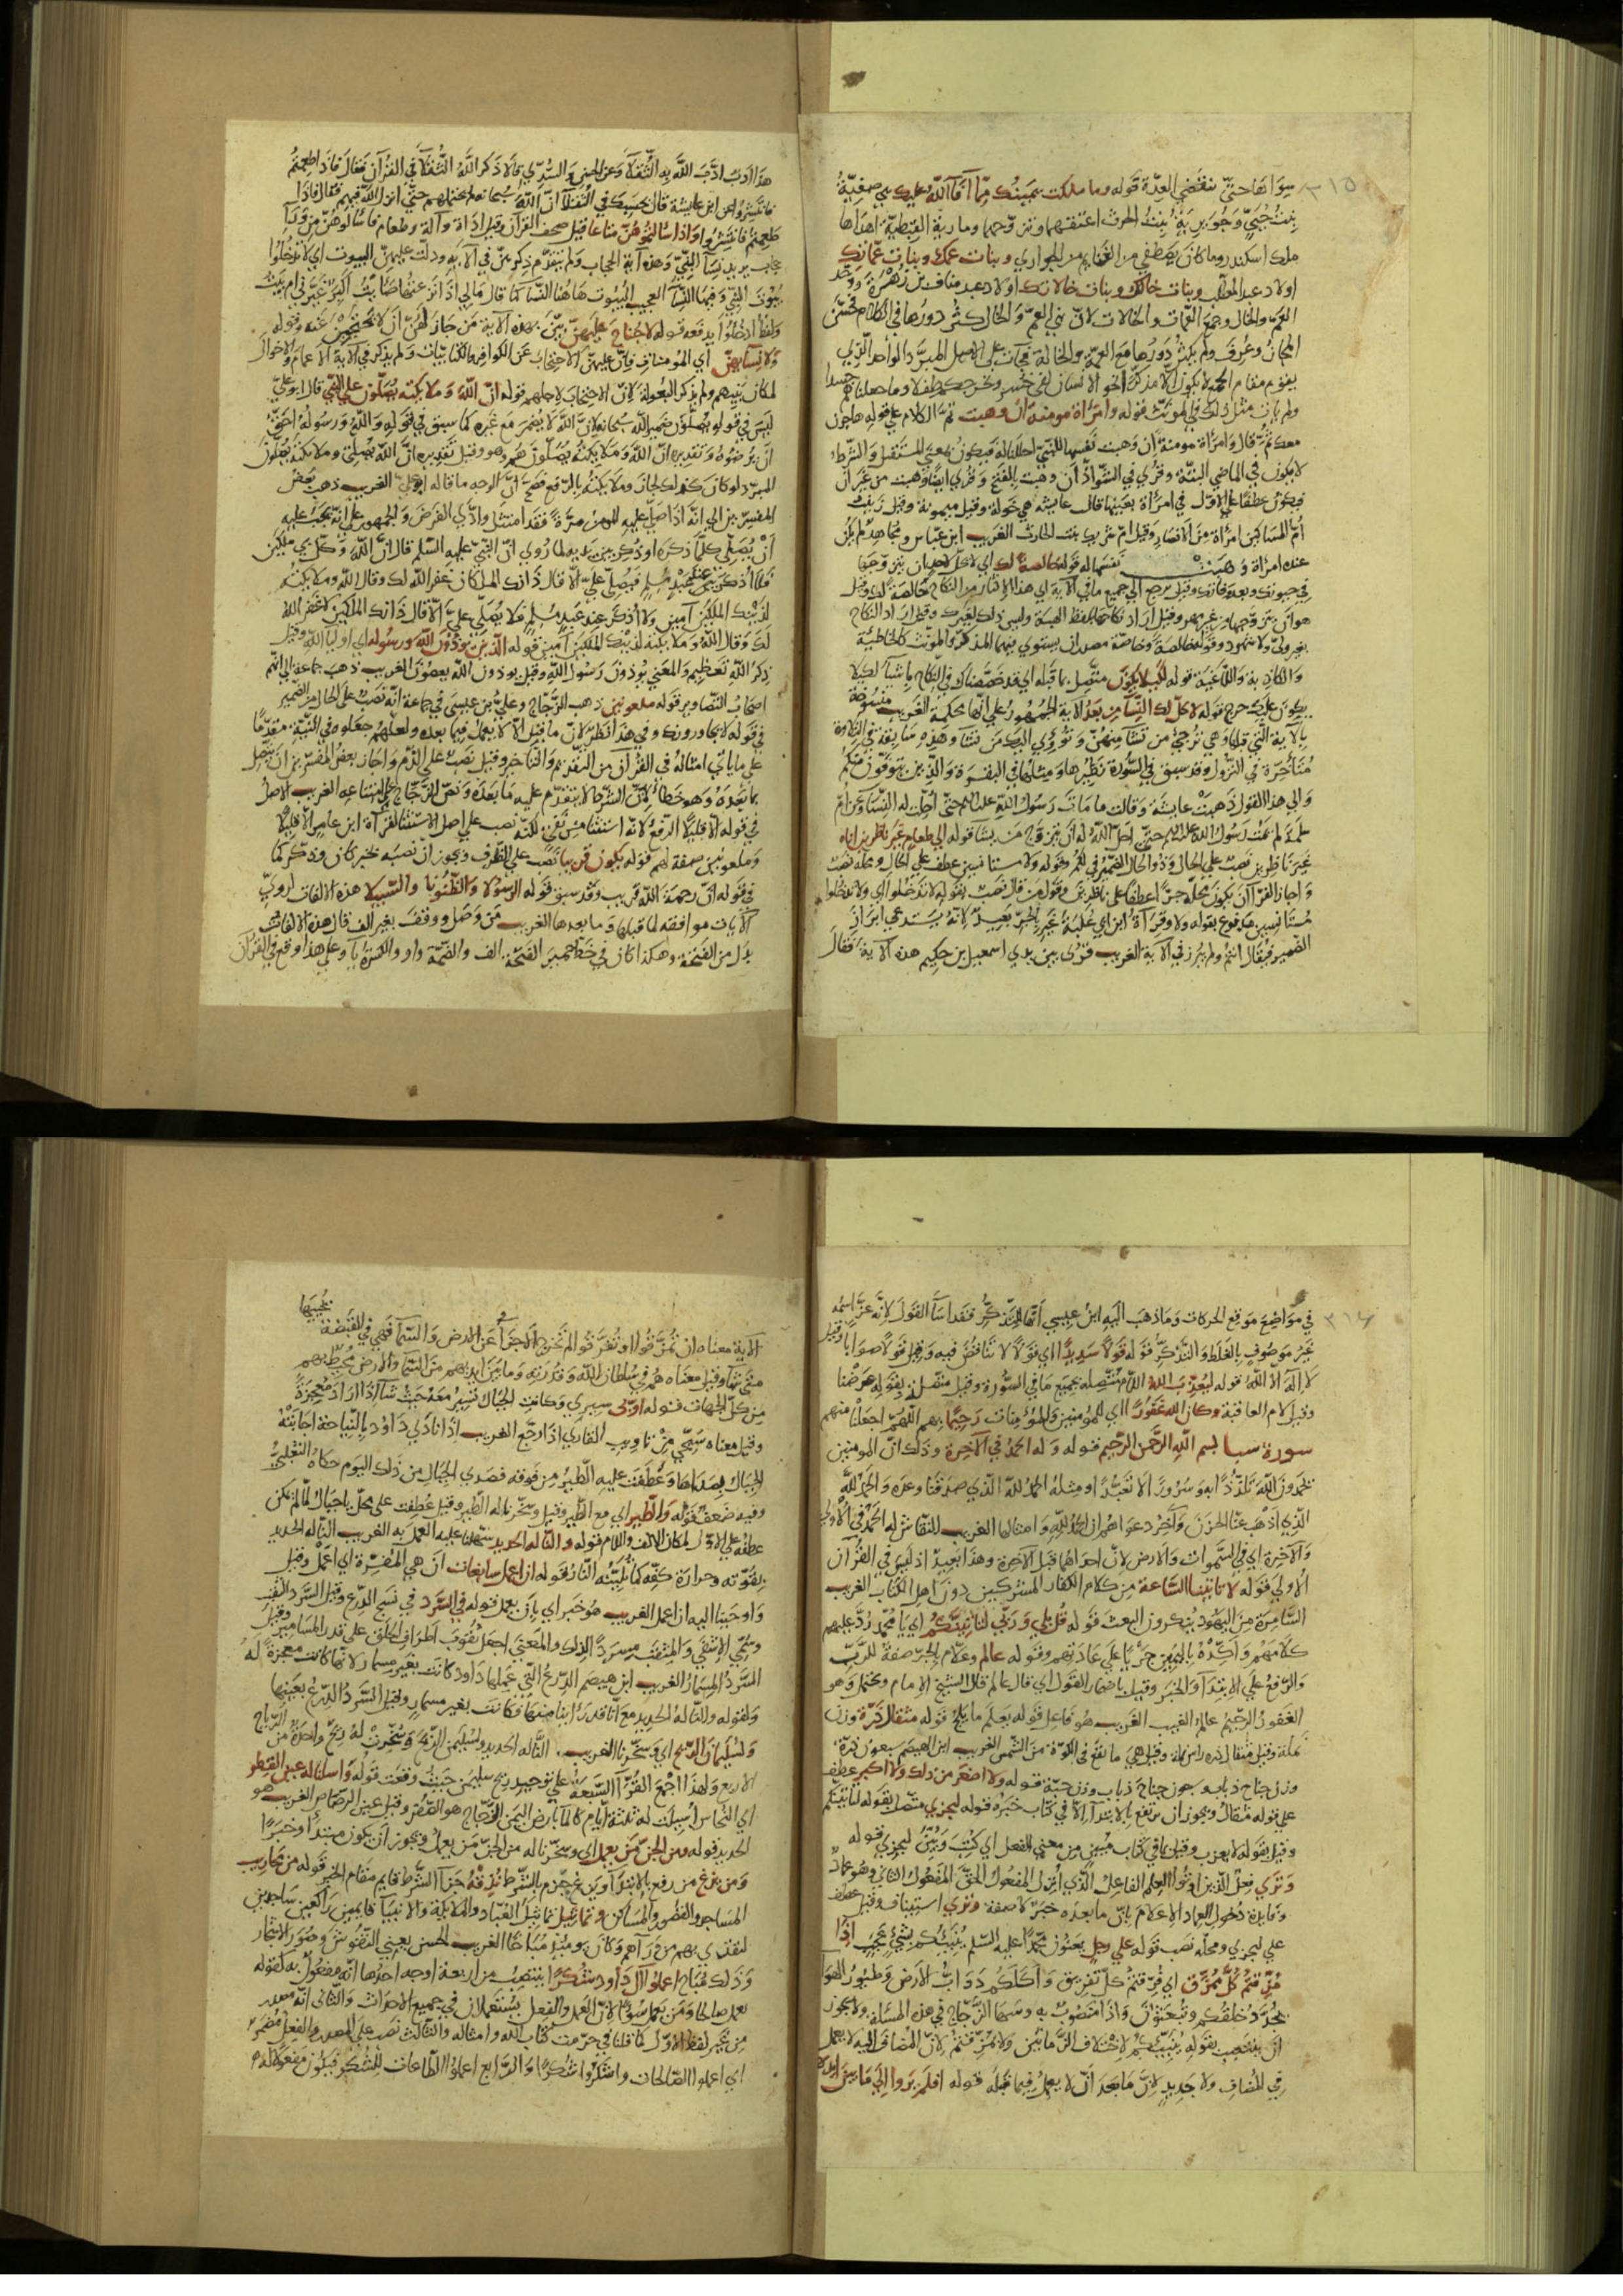 ٣١٥
سواها حتى تنقضي العدة قوله وما ملكت يمينك مما أفاء الله عليك هي صفية
بنت حيي وجويرية بنت الحرث اعتقهما وتزوجهما ومارية القبطية اهداها
ملك اسكندر وما كان يصطفي من الغنايم من الجواري وبنات عمك وبنات عماتك
اولاد عبد المطلب وبنات خالك وبنات خالاتك اولاد عبد مناف بن زهرة ووحد
العم والخال وجمع العمات والخالات لان بني العم والخال كثر دورها في الكلام فحسن
المجاز وعرف ولم يكثر دورها مع العمة والخالة فجآت على الاصل المبرد الواحد الذي
يقوم مقام الجمع لا يكون الا مذكرا نحو الانسان لفي خسر ونخرجكم طفلا وما جعلناهم جسدا
ولم يأت مثل ذلك في المؤنث قوله وامرأة مومنة ان وهبت تم الكلام على قوله هاجرن
معك ثم قال وامرأة مومنة ان وهبت نفسها للنبي احللنا له فيكون بمعنى المستقبل والشرط
لا يكون في الماضي البتة وقرئ في الشواذ أن وهبت بالفتح وقرئ ايضا وهبت من غير ان
فيكون عطفا على الاول في امرأة بعينها قالت عايشة هي خولة وقيل ميمونة وقيل زينب
أم المساكين امرأة من الانصار وقيل ام شريك بنت الحارث الغريب ابن عباس ومجاهد لم يكن
عنده امرأة وهبت نفسها له قوله خالصة لك اي لا يحل لاحد ان يتزوجها
في حيوتك وبعد وفاتك وقيل يرجع الى جميع ما في الآية اي هذا الاكثار من النكاح خالصة لك وقيل
هو ان يتزوجها بغير مهر وقيل اراد نكاحها بلفظ الهبة وليس ذلك لغيرك وقيل اراد النكاح
بغير ولي ولا شهود وقوله خالصة وخاصة مصدران يستوي فيهما المذكر والمونث كالخاطية
والكاذبة واللاغية قوله لكيلا يكون متصل بما قبله اي قد خصصناك في النكاح باشيآ لكيلا
يكون عليك حرج قوله لا يحل لك النسآ من بعد الآية الجمهور على انها محكمة الغريب منسوخة
بالآية التي قبلها وهي ترجي من تشآ منهن وتؤوي اليك من تشآ وهذه سابقة في التلاوة
متأخرة في النزول وقد سبق في السورة نظيرها ومثلها في البقرة والذين يتوفون منكم
والى هذا القول ذهبت عايشة وقالت ما مات رسول الله عليه السلم حتى احلت له النسآ وعن ام
سلمة لم يمت رسول الله عليه السلم حتى احل الله له ان يتزوج من يشآ قوله الى طعام غير ناظرين اناه
غير ناظرين نصب على الحال وذو الحال الضمير في لكم وقوله ولا مستانسين عطف على الحال ومحله نصب
واجاز الفرآ ان يكون محله جرا عطفا على ناظرين وقول من قال نصب بقوله لا تدخلوا اي ولا تدخلوا
مستأنسين مدفوع بقوله ولا وقرآة ابن ابي عبلة غير بالجر بعيد لانه يستدعي ابراز
الضمير فيقال انتم ولم يبرز في الآية الغريب قرئ بين يدي اسمعيل بن حكيم هذه الآية فقال
هذا ادب ادب الله به الثقلآ وعن الحسن والسدي قالا ذكر الله الثقلآ في القرآن فقال فاذا طعمتم
فانتشروا وعن ابن عايشة قال حسبك في الثقلآ ان الله سبحانه لم يحتملهم حتى انزل الله فيهم فقال فاذا
طعمتم فانتشروا واذا سألتموهن متاعا قيل صحف القرآن وقيل اداة وآلة وطعام فاسألوهن من ورآء
حجاب يريد نسآ النبي وهذه آية الحجاب ولم يتقدم ذكرهن في الآية ودلت عليهن البيوت اي لا تدخلوا
ولفظ ادخلوا يدفعه قوله لا جناح عليهن بين بهذه الآية من جاز لهن ان لا يحتجبن عنه وقوله
ولا نسآيهن اي المومنات فان عليهن الاحتجاب عن الكوافر والكتابيات ولم يذكر في الآية الاعمام والاخوال
لمكان بنيهم ولم يذكر البعولة لان الاحتجاب لاجلهم قوله ان الله وملايكته يصلون على النبي قال ابو علي
ليس في قوله يصلون ضمير الله سبحانه لان الله لا يضمر مع غيره كما سبق في قوله والله ورسوله احق
ان يرضوه وتقديره ان الله وملايكته يصلون هو وهم وقيل تقديره ان الله يصلي وملايكته يصلون
المبرد لو كان كذلك لجاز وملايكته بالرفع فصح ان الوجه ما قاله ابو علي الغريب ذهب بعض
المفسرين الى انه اذا صلى عليه المومن مرة فقد امتثل وادى الفرض والجمهور على انه يجب عليه
ان يصلي كلما ذكره او ذكر بين يديه لما روي ان النبي عليه السلم قال ان الله وكل بي ملكين
فلا اذكر عند عبد مسلم فيصلي علي الا قال ذانك الملكان غفر الله لك وقال الله وملايكته
لذينك الملكين آمين ولا اذكر عند عبد مسلم فلا يصلي علي الا قال ذانك الملكين لا غفر الله
لك وقال الله وملايكته لذينك الملكين آمين قوله الذين يوذون الله ورسوله اي اوليآ الله وقيل
ذكر الله تعظيم والمعنى يوذون رسول الله وقيل يوذون الله يعصون الغريب ذهب جماعة الى انهم
اصحاب التصاوير قوله ملعونين ذهب الزجاج وعلي بن عيسى في جماعة انه نصب على الحال من الضمير
في قوله لا يجاورونك وفي هذا نظر لان ما قبل الا لا يعمل فيما بعده ولعلهم جعلوه في النية مقدما
على ما يأتي امثاله في القرآن من التقديم والتاخير وقيل نصب على الذم واجاز بعض المفسرين ان يتصل
بما بعده وهو خطأ لان الشرط لا يتقدم عليه ما بعده ونص الزجاج على امتناعه الغريب الاصل
في قوله الا قليلا الرفع لانه استثنا من نفي لكنه نصب على اصل الاستثنا لقرآة ابن عامر الا قليلا
وملعونين صفة لهم قوله يكون قريبا نصب على الظرف ويجوز ان نصبه بخبر كان وذكر كما
في قوله ان رحمة الله قريب وقد سبق قوله الرسولا والظنونا والسبيلا هذه الالفات لروي
الآيات موافقة لما قبلها وما بعدها الغريب من وصل ووقف بغير الف قال هذه الالفات
بدل من الفتحة وهكذا كان في خط حمير الفتحة الف والضمة واو والكسرة يآ وعلى هذا وقع في القرآن
٣١٦
في مواضع موقع الحركات وما ذهب اليه ابن عيسى انها للتذكر فقد اسآ القول لانه عز اسمه
غير موصوف بالغلط والتذكر قوله قولا سديدا اي قولا لا تناقض فيه وقيل قولا صوابا وقيل
لا اله الا الله قوله ليعذب الله اللام متصلة بجميع ما في السورة وقيل متصلة بقوله عرضنا
وقيل لام العاقبة وكان الله غفورا اي للمؤمنين والمؤمنات رحيما بهم اللهم اجعلنا منهم
سورة سبا بسم الله الرحمن الرحيم قوله وله الحمد في الآخرة وذلك ان المومنين
يحمدون الله تلذذا به وسرورا لا تعبدا ومثله الحمد لله الذي صدقنا وعده والحمد لله
الذي اذهب عنا الحزن وآخر دعواهم ان الحمد لله وامثالها الغريب للنقاش له الحمد في الاولى
والآخرة اي في السموات والارض لان احداهما قبل الآخرة وهذا بعيد اذ ليس في القرآن
الاولى قوله لا تاتينا الساعة من كلام الكفار المشركين دون اهل الكتاب الغريب
السامرة من اليهود ينكرون البعث قوله قل بلى وربي لتاتينكم اي يا محمد رد عليهم
كلامهم واكده باليمين جريا على عادتهم وقوله عالم وعلام بالجر صفة للرب
والرفع على الابتدآ والخبر وقيل باضمار القول اي قال عالم قال الشيخ الامام ويحتمل وهو
الغفور الرحيم عالم الغيب الغريب هو فاعل قوله يعلم ما يلج قوله مثقال ذرة وزن
نملة وقيل مثقال ذرة راس نملة وقيل هي ما تقع في الكوة من الشمس الغريب ابن الهيصم سبعون ذرة
وزن جناح ذبابة وسبعون جناح ذباب وزن حبة قوله ولا اصغر من ذلك ولا اكبر عطف
على قوله مثقال ويجوز ان يرتفع بالابتدآ الا في كتاب خبره قوله ليجزي متصل بقوله لتاتينكم
وقيل بقوله لا يعزب وقيل بما في كتاب مبين من معنى الفعل اي كتب وبين ليجزي قوله
ويرى فعل الذين اوتوا العلم الفاعل الذي انزل المفعول الحق المفعول الثاني وهو عماد
وفايدة دخول العماد الاعلام بان ما بعده خبر لا صفة ويرى استيناف وقيل عطف
على ليجزي ومحله نصب قوله على رجل يعنون محمدا عليه السلم ينبئكم بشيء عجب اذا
مزقتم كل ممزق اي فرقتم كل تفريق واكلكم دواب الارض وطيور الهوآ
يجدد خلقكم وتبعثون واذا منصوب به وسها الزجاج في هذه المسئلة ولا يجوز
ان ينتصب بقوله ينبئكم لاختلاف الزمانين ولا مزقتم لان المضاف اليه لا يعمل
في المضاف ولا جديد لان ما بعد ان لا يعمل فيما قبله قوله افلم يروا الى ما بين ايديهم
الآية معناه ان ثمر قوا او تفرقوا لم تخرج الاجزآ عن الارض والسمآ فهي في القبضة يجيبها
متى شآ وقيل معناه هم في سلطان الله وقدرته وما بين ايديهم من السمآ والارض محيط بهم
من كل الجهات قوله اوبي سيري وكانت الجبال تسير معه حيث شآ اذا اراد معجزة
وقيل معناه سبحي من تاويب القاري اذا رجع الغريب اذا نادى داود بالنياحة اجابته
الجبال بصداها وعطفت عليه الطير من فوقه فصدى الجبال من ذلك اليوم حكاه الثعلبي
وفيه ضعف قوله والطير اي مع الطير وقيل وسخرنا له الطير وقيل عطفت على محل يا جبال لما لم يمكن
عطفه على الاول لمكان الالف واللام قوله والنا له الحديد سهلنا عليه العمل به الغريب النا له الحديد
بقوته وحرارة كفه كما تلينه النار قوله ان اعمل سابغات ان هي المفسرة اي اعمل وقيل
واوحينا اليه ان اعمل الغريب هو خبر اي بان يعمل قوله في السرد في نسج الدرع وقيل السرد الثقب
وسمي الاشفى والمثقب مسردا لذلك والمعنى اجعل ثقوب اطراف الحلق على قدر المسامير وقيل
السرد المسمار الغريب ابن هيصم الدرع التي عملها داود كانت بغير مسمار لانها كانت معجزة له
ولقوله والنا له الحديد مع انا قد رأينا منها فكانت بغير مسمار وقيل السرد الدرع بعينها
ولسليمان الريح اي وسخرنا الغريب النا له الحديد ولسليمن الريح وسخرت له ريح واحدة من الرياح
الاربع ولهذا اجمع القرآ السبعة على توحيد ريح سليمن حيث وقعت قوله واسلنا له عين القطر
اي النحاس اسيلت له ثلثة ايام كالمآ بارض اليمن الزجاج هو الصفر وقيل عين الرصاص الغريب هو
الحديد قوله ومن الجن من يعمل اي وسخرنا له من الجن من يعمل ويجوز ان يكون مبتدا وخبرا
ومن يزغ من رفع بالابتدآ ويزغ جزم بالشرط نذقه جزآ الشرط قايم مقام الخبر قوله من محاريب
المساجد والقصور والمساكن وتماثيل تماثيل العباد والملايكة والانبيآ قايمين راكعين ساجدين
ليقتدي بهم من رآهم وكان يومئذ مباحا الغريب الحسن يعني النقوش وصور الاشجار
وذلك مباح اعملوا آل داود شكرا ينتصب من اربعة اوجه احدها انه مفعول به كقوله
يعمل صالحا ومن يعمل سوءا لان العمل والفعل يستعملان في جميع الاحداث والثاني انه مصدر
من غير لفظ الاول كما قلنا في حرمت كتاب الله وامثاله والثالث نصب على المصدر والفعل مضمر
اي اعملوا الصالحات واشكروا شكرا والرابع اعملوا الطاعات للشكر فيكون مفعولا له